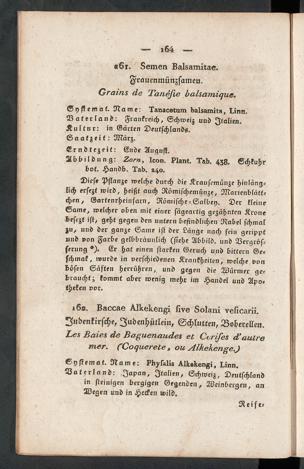 — 164 —
161. Semen Balsamitae.
Frauenmünzsamen.
Grains de Tanésie balsamique.
Systemat. Name: Tanacetum balsamita, Linn.
Vaterland: Frankreich, Schweiz und Italien.
Kultur: in Gärten Deutschlands.
Saatzeit: März.
Erndtezeit: Ende August.
Abbildung: Zorn, Icon. Plant. Tab. 438. Schkuhr
bot. Handb. Tab. 240.
Diese Pflanze welche durch die Krausemünze hinläng-
lich ersezt wird, heißt auch Römischemünze, Marienblätt-
chen, Gartenrheinfarn, Römische-Salbey. Der kleine
Same, welcher oben mit einer sägeartig gezähnten Krone
besezt ist, geht gegen den untern befindlichen Nabel schmal
zu, und der ganze Same ist der Länge nach fein gerippt
und von Farbe gelbbräunlich (siehe Abbild. und Vergrös-
serung *). Er hat einen starken Geruch und bittern Ge-
schmak, wurde in verschiedenen Krankheiten, welche von
bösen Säften herrühren, und gegen die Würmer ge-
braucht; kommt aber wenig mehr im Handel und Apo-
theken vor.
162. Baccae Alkekengi sive Solani vesicarii.
Judenkirsche, Judenhütlein, Schlutten, Boberellen.
Les Baies de Baguenaudes et Cerises d'autre
mer. (Coquerete, ou Alkekenge.)
Systemat. Name: Physalis Alkekengi, Linn.
Vaterland: Japan, Italien, Schweiz, Deutschland
in steinigen bergigen Gegenden, Weinbergen, an
Wegen und in Hecken wild.
Reife-